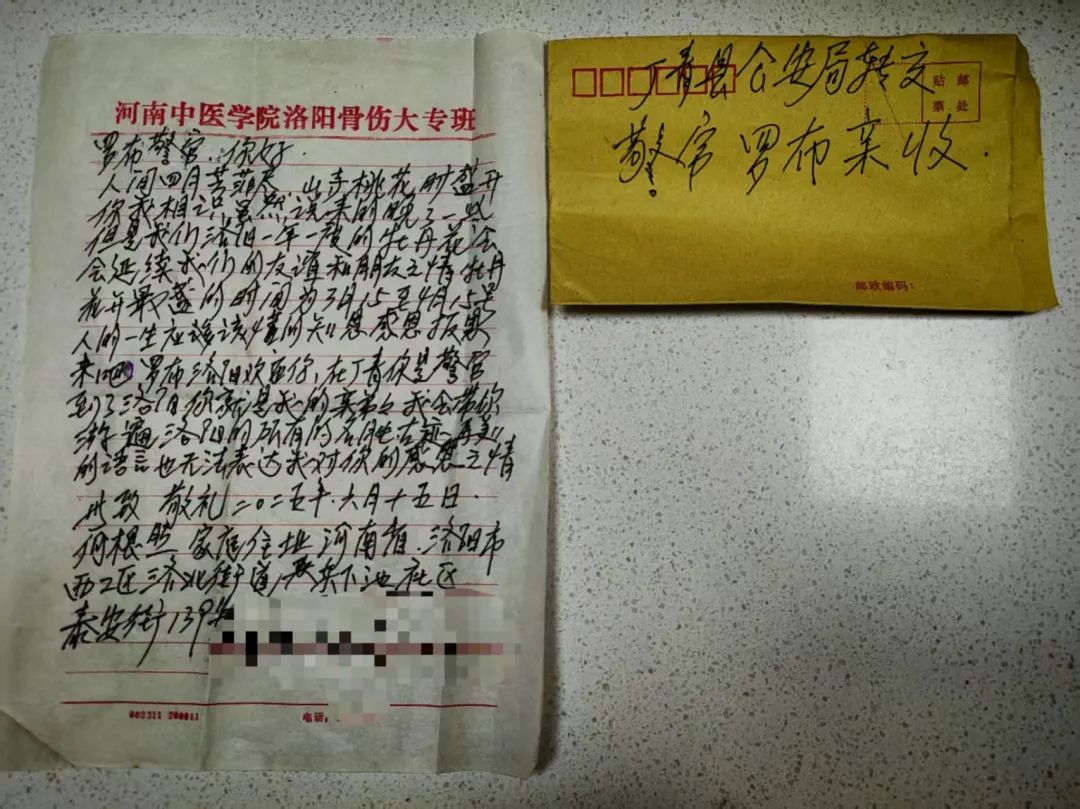 河南中医学院洛阳骨伤大专班
罗布警官.你好.
人间四月芳菲尽.山寺桃花时盛开
你我相识虽然说来的晚了一些
但是我们洛阳一年一度的牡丹花会
会延续我们的友谊和朋友之情牡丹
花开最盛的时间为3月15至4月15号
人的一生应该该懂的知恩感恩报恩
来吧罗布洛阳欢迎你、在丁青你是警官
到了洛阳你就是我的亲弟弟我会带你
游遍洛阳的所有的名胜古迹再美
的语言也无法表达我对你的感恩之情
此致 敬礼二〇二五年.六月十五日.
何根 家庭住址河南省.洛阳市
西工区洛北街道 东下池社区
泰安街139号
002311 200011
电话:
丁青县公安局转交
警官罗布亲收.
贴邮
票处
邮政编码: